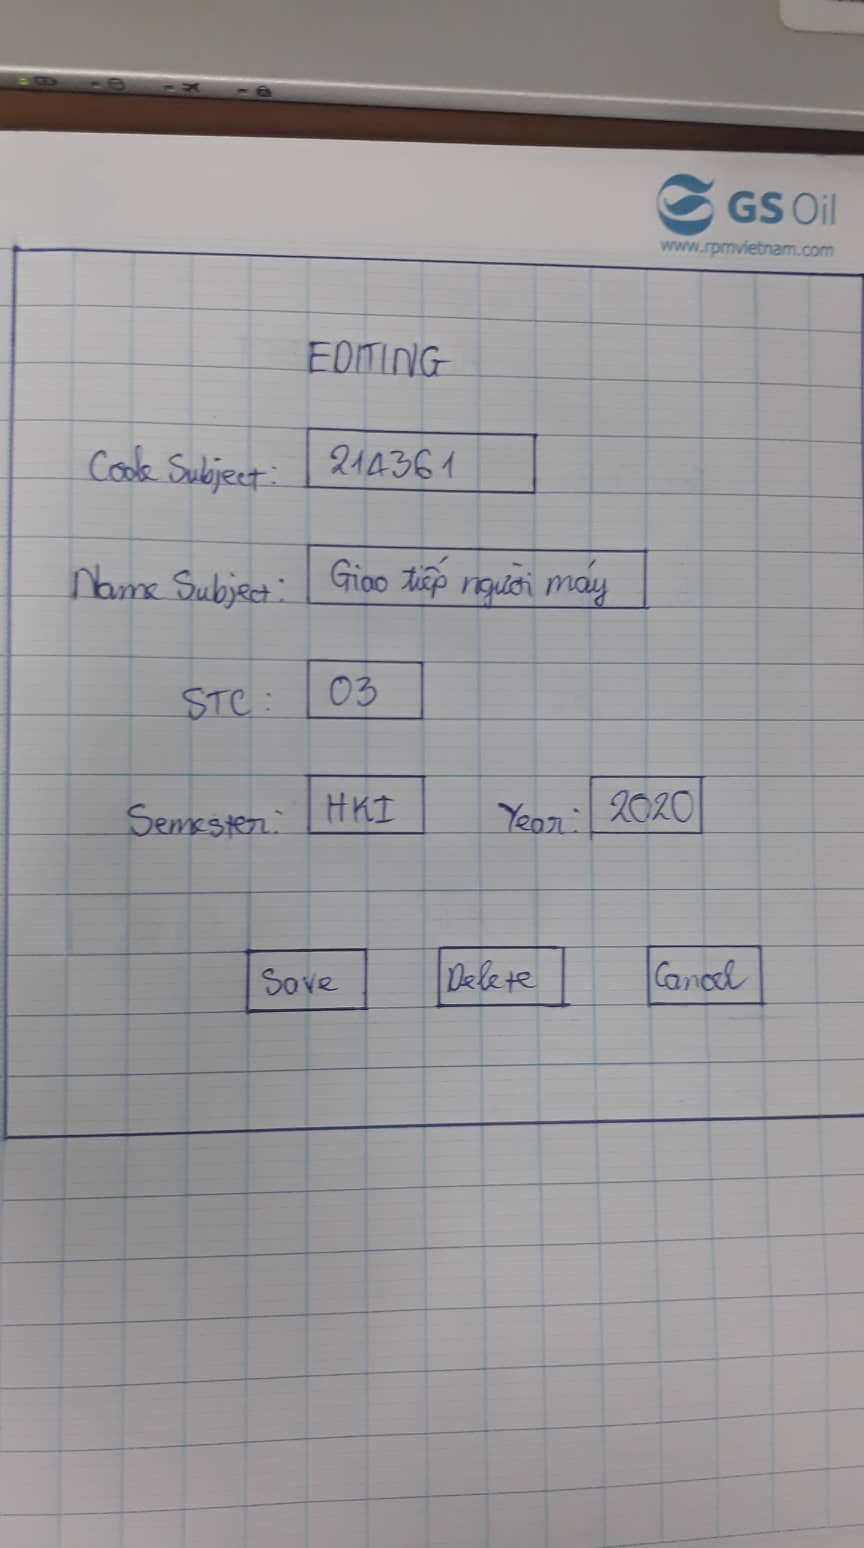 GS Oil
www.rpmvietnam.com
EDITING
Code Subject: 214361
Name Subject: Giao tiếp người máy
STC: 03
Semester: HKI Year: 2020
Save Delete Cancel